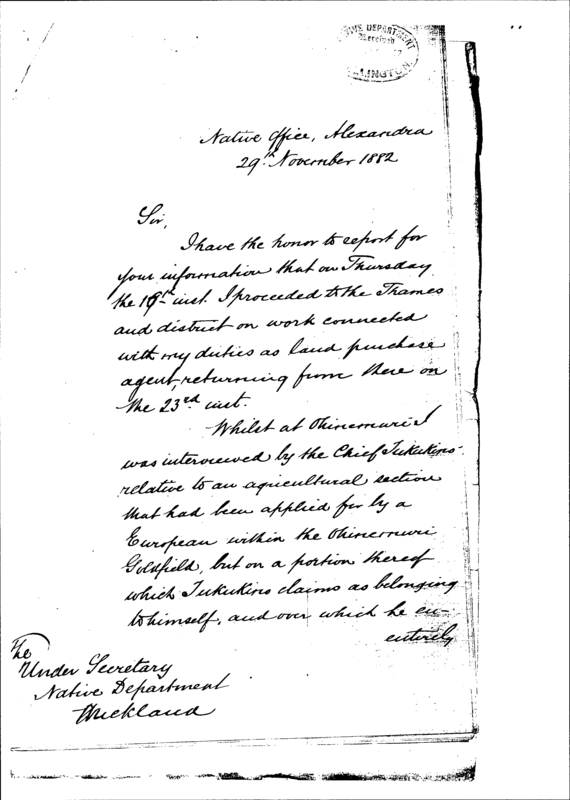 DEPARTMENT
Received
Native Office, Alexandra
29th November 1882
Sir,
I have the honor to report for
your information that on Thursday
the 19th inst. I proceeded to the Thames
and district on work connected
with my duties as land purchase
agent, returning from there on
the 23rd inst.
Whilst at Ohinemuri I
was interviewed by the Chief Tukukino
relative to an agricultural section
that had been applied for by a
European within the Ohinemuri
Goldfield, but on a portion thereof
which Tukukino claims as belonging
to himself, and over which he en-
entirely
The
Under Secretary
Native Department
Auckland